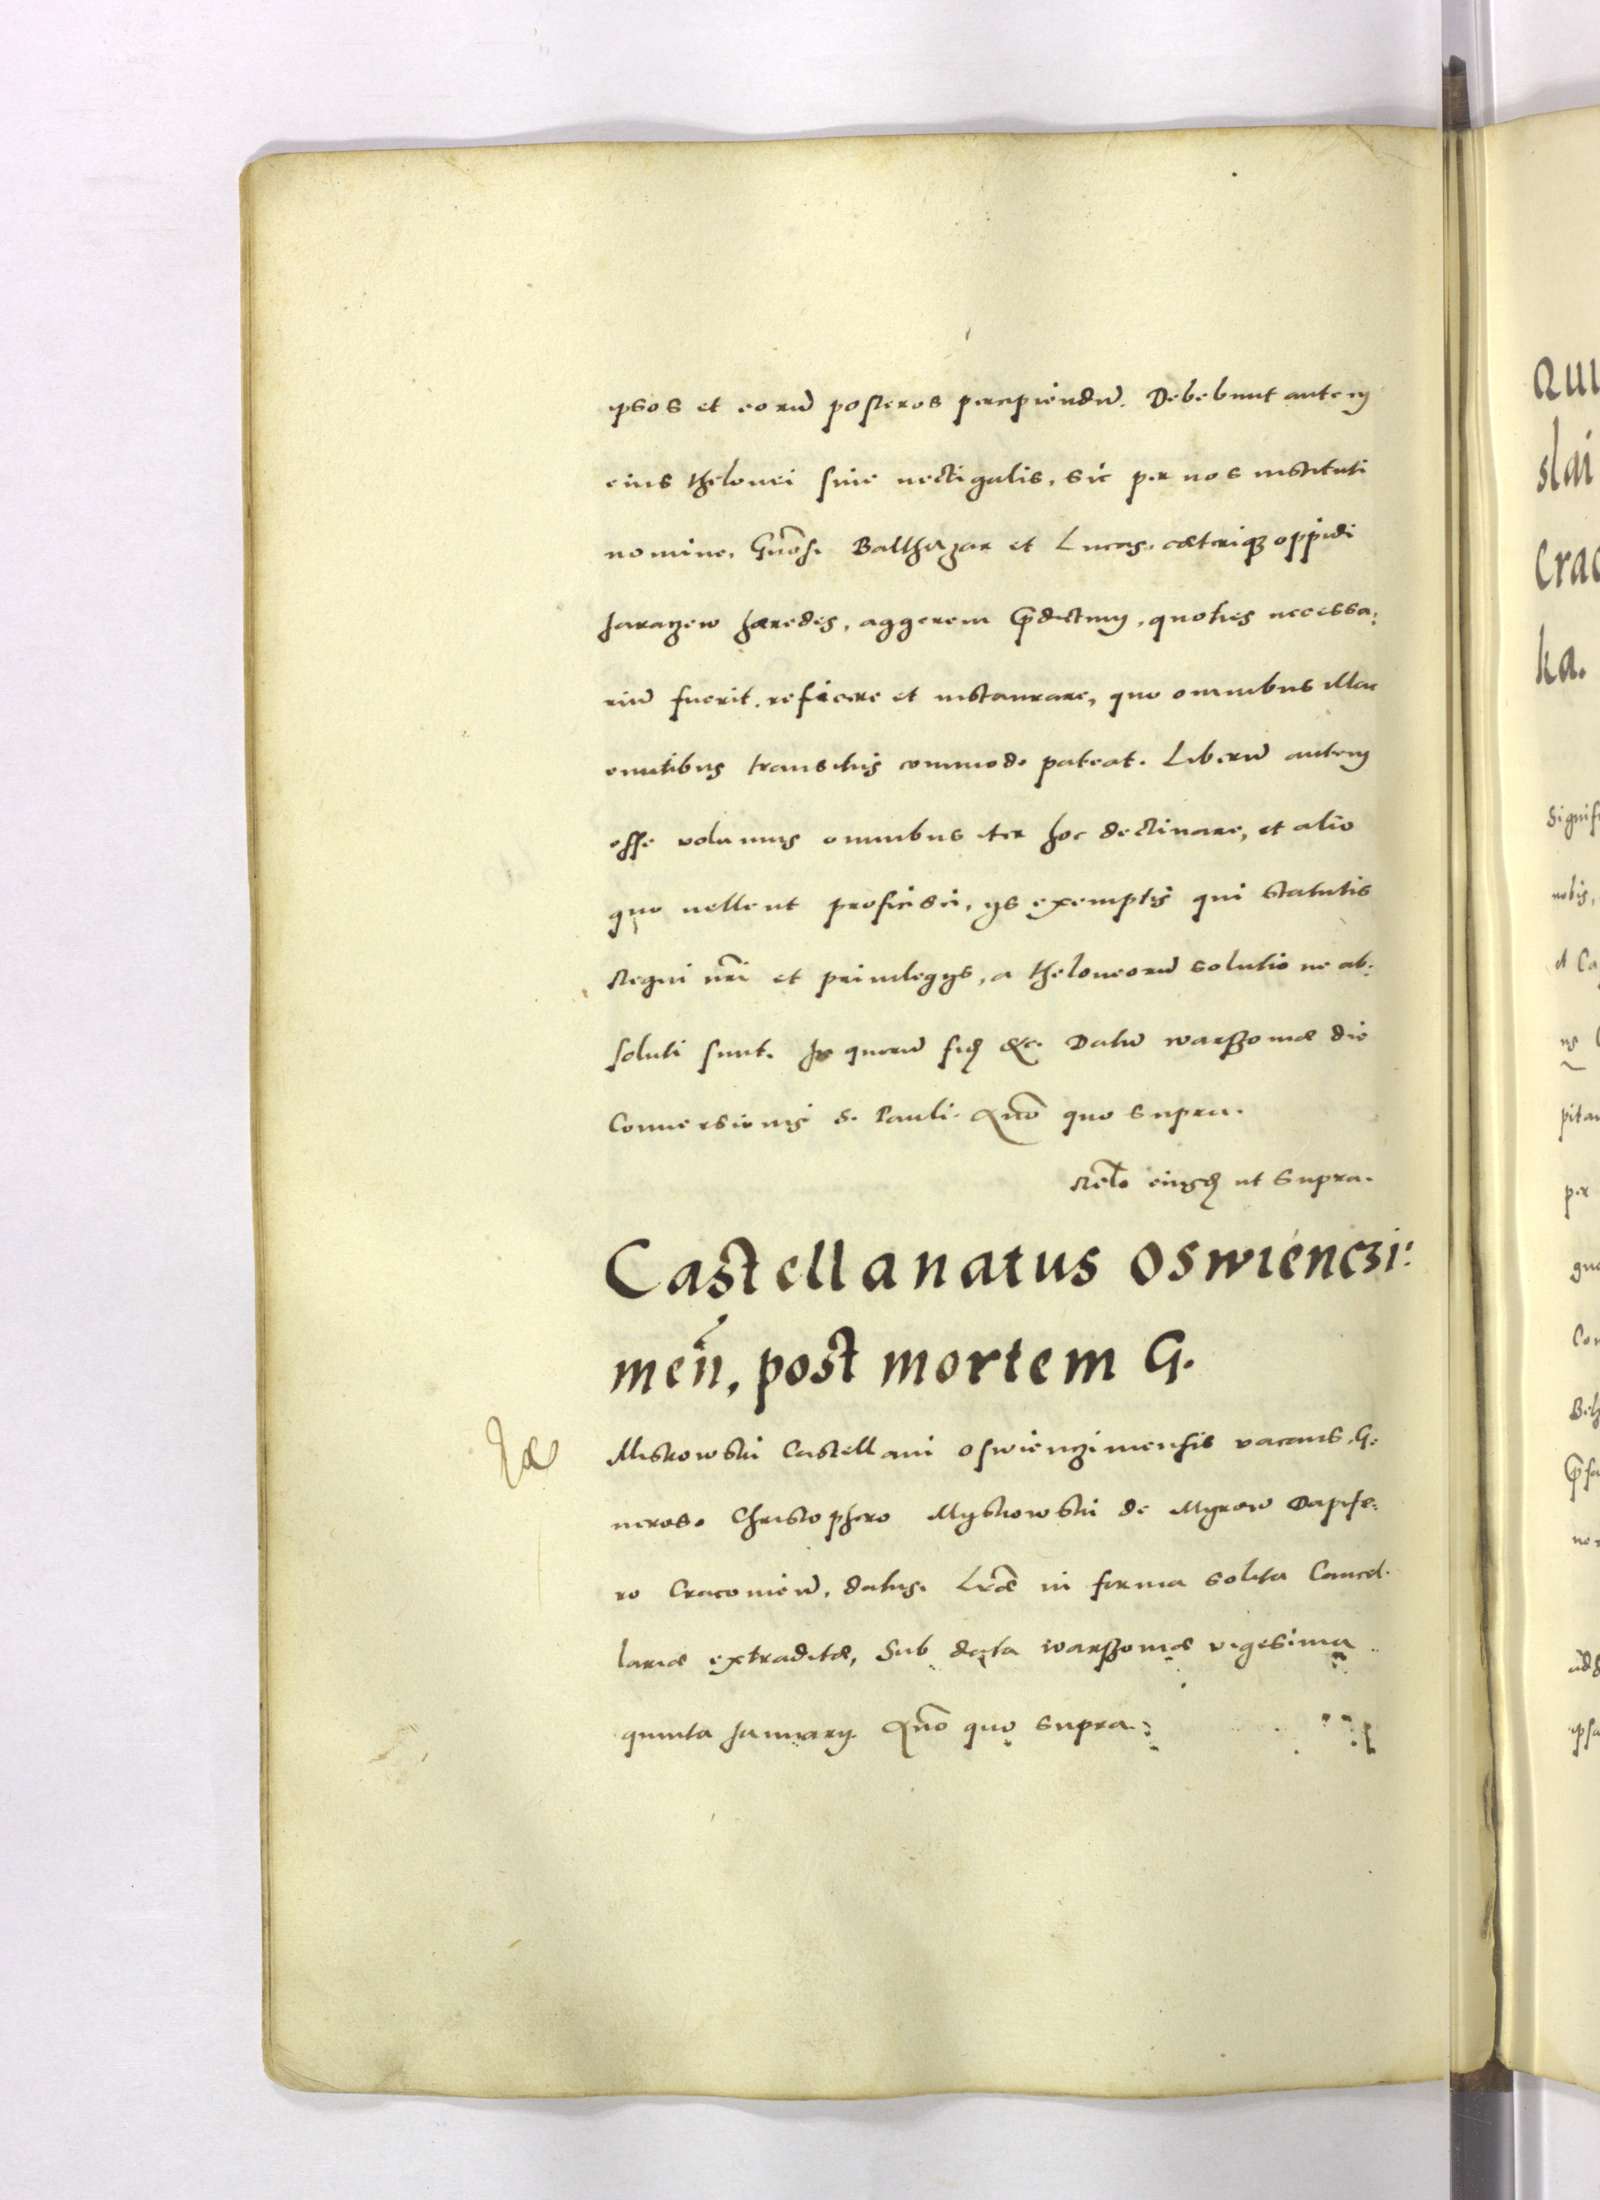 ipsos et eorū posteros percipiendū. Debebunt autem
eius thelonei siue uectigalis, sic per nos instituti
nomine, Gnōsi Balthazar et Lucas, cæteriq3 oppidi
Jaraczew hæredes, aggerem p̄dictum, quoties necessa:
riū fuerit, reficere et instaurare, quo omnibus illac
euntibus transitus commode pateat. Liberū autem
esse volumus omnibus iter hoc declinare, et alio
quo uellent proficisci, ijs exemptis qui statutis
Regni nr̄i et priuilegijs, a theloneorū solutione ab:
soluti sunt. In quorū fid &c. Datū warszouiæ die
Conuersionis S. Pauli. Anno quo supra.
Relō eiusd ut supra.
Castellanatus Oswienczi:
meñ, post mortem G.
Miskowski Castellani Oswienczimensis vacans, G:
neroso Christophero Myskowski de Myrow Dapife:
ro Cracouieñ, datus. Lr̄æ in forma solita Cancel:
lariæ extraditæ, Sub data warszouiæ vigesima
quinta January Anno quo supra.
QUI
slai
Crac
ka.
Signifi
nobis,
et Ca
pitan
per
Con
p̄fa
ipsa